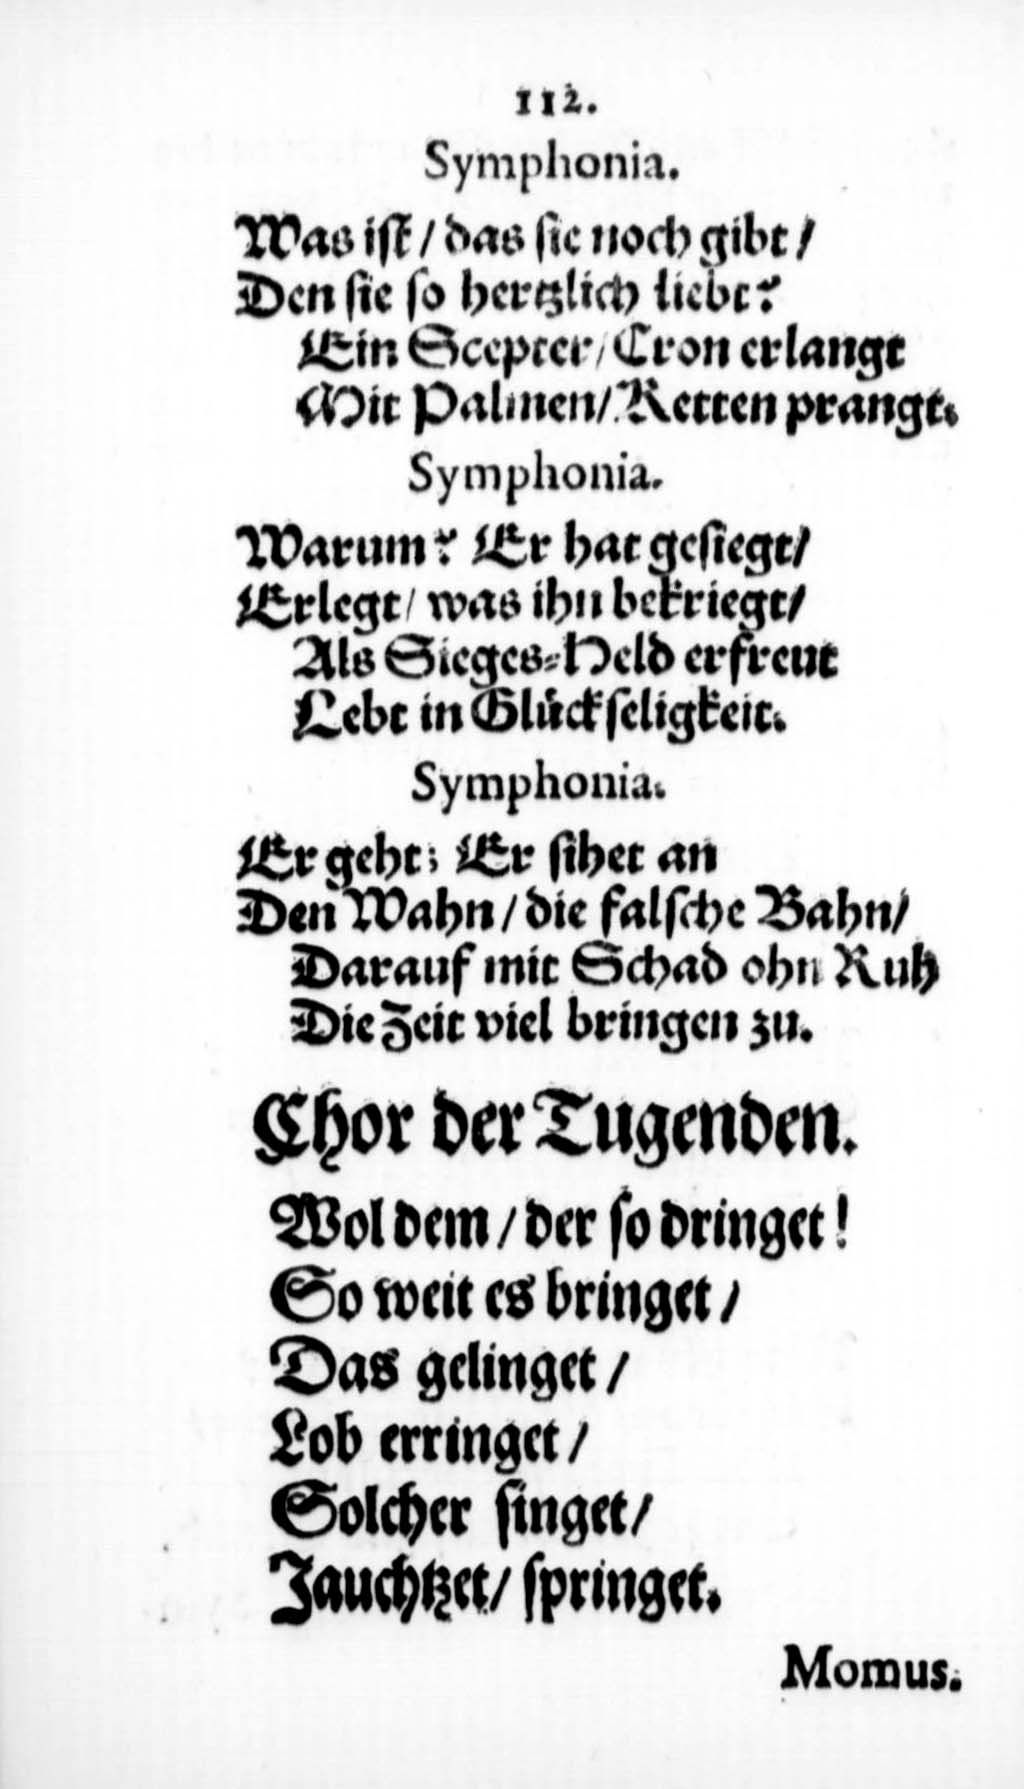 112.
Symphonia.
Was iſt / das ſie noch gibt /
Den ſie ſo hertzlich liebt?
Ein Scepter / Cron erlangt
Mit Palmen / Ketten prangt.
Symphonia.
Warum? Er hat geſiegt /
Erlegt / was ihn bekriegt /
Als Sieges-Held erfreut
Lebt in Glůckſeligkeit.
Symphonia.
Er geht; Er ſihet an
Den Wahn / die falſche Bahn /
Darauf mit Schad ohn Ruh
Die Zeit viel bringen zu.
Chor der Tugenden.
Wol dem / der ſo dringet!
So weit es bringet /
Das gelinget /
Lob erringet /
Solcher ſinget /
Jauchtzet / ſpringet.
Momus.